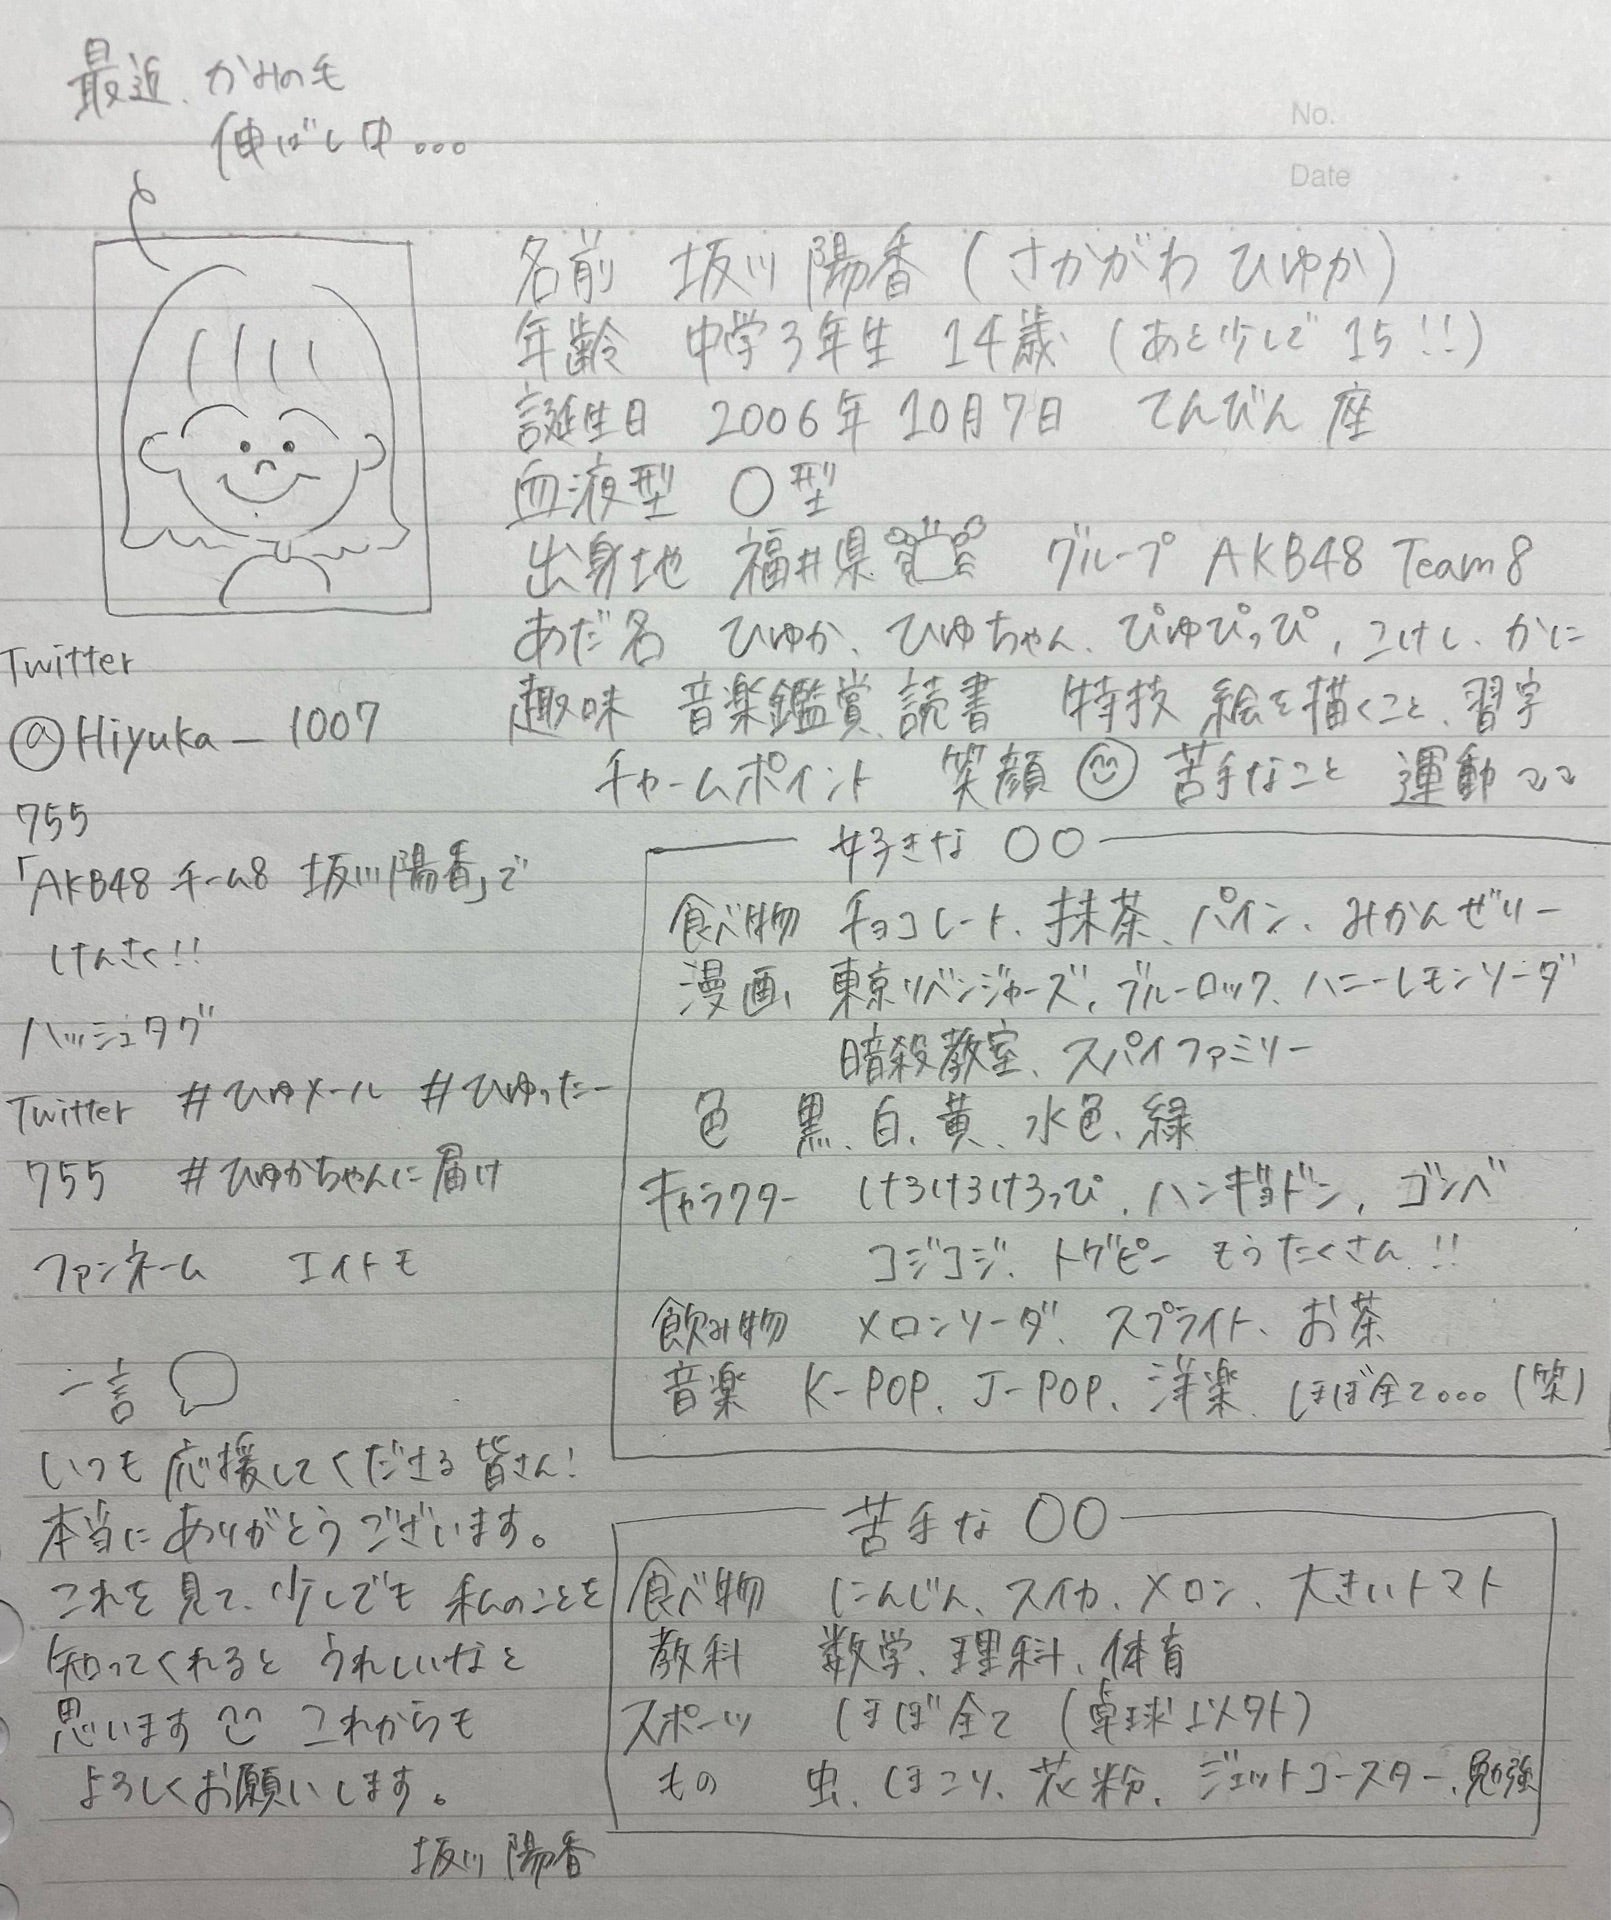 最近、かみの毛
伸ばし中...
No.
Date
名前 坂川 陽香 (さかがわ ひゆか)
年齢 中学3年生 14歳 (あと少しで 15!!)
誕生日 2006年 10月7日 てんびん座
血液型 O型
出身地 福井県 グループ AKB48 Team8
あだ名 ひゆか、ひゆちゃん、ぴゆぴっぴ、こけし、かに
趣味 音楽鑑賞、読書 特技 絵を描くこと、習字
チャームポイント 笑顔 苦手なこと 運動
Twitter
@Hiyuka_1007
755
「AKB48 チーム8 坂川陽香」で
けんさく!!
ハッシュタグ
Twitter #ひゆメール #ひゆったー
755 #ひゆかちゃんに届け
ファンネーム エイトモ
一言
いつも応援してくださる皆さん!
本当にありがとうございます。
これを見て、少しでも私のことを
知ってくれるとうれしいなと
思います これからも
よろしくお願いします。
坂川 陽香
好きな〇〇
食べ物 チョコレート、抹茶、パイン、みかんゼリー
漫画 東京リベンジャーズ、ブルーロック、ハニーレモンソーダ
暗殺教室、スパイファミリー
色 黒、白、黄、水色、緑
キャラクター けろけろけろっぴ、ハンギョドン、ゴンベ
コジコジ、トゲピー もうたくさん!!
飲み物 メロンソーダ、スプライト、お茶
音楽 K-POP、J-POP、洋楽、ほぼ全て... (笑)
苦手な〇〇
食べ物 にんじん、スイカ、メロン、大きいトマト
教科 数学、理科、体育
スポーツ ほぼ全て (卓球以外)
もの 虫、ほこり、花粉、ジェットコースター、勉強